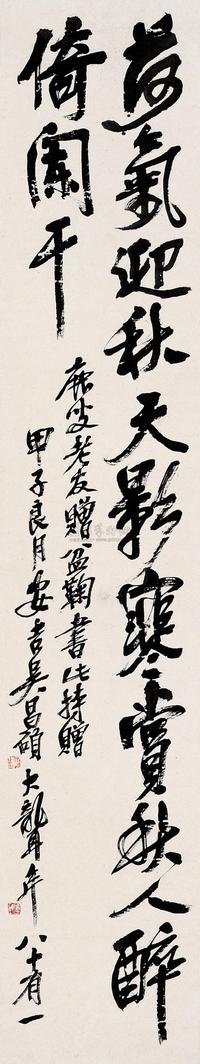 荷氣迎秋天影寒賞秋人醉
倚闌干
老友贈盆菊書此持贈
甲子良月安吉吳昌碩大聾年八十有一